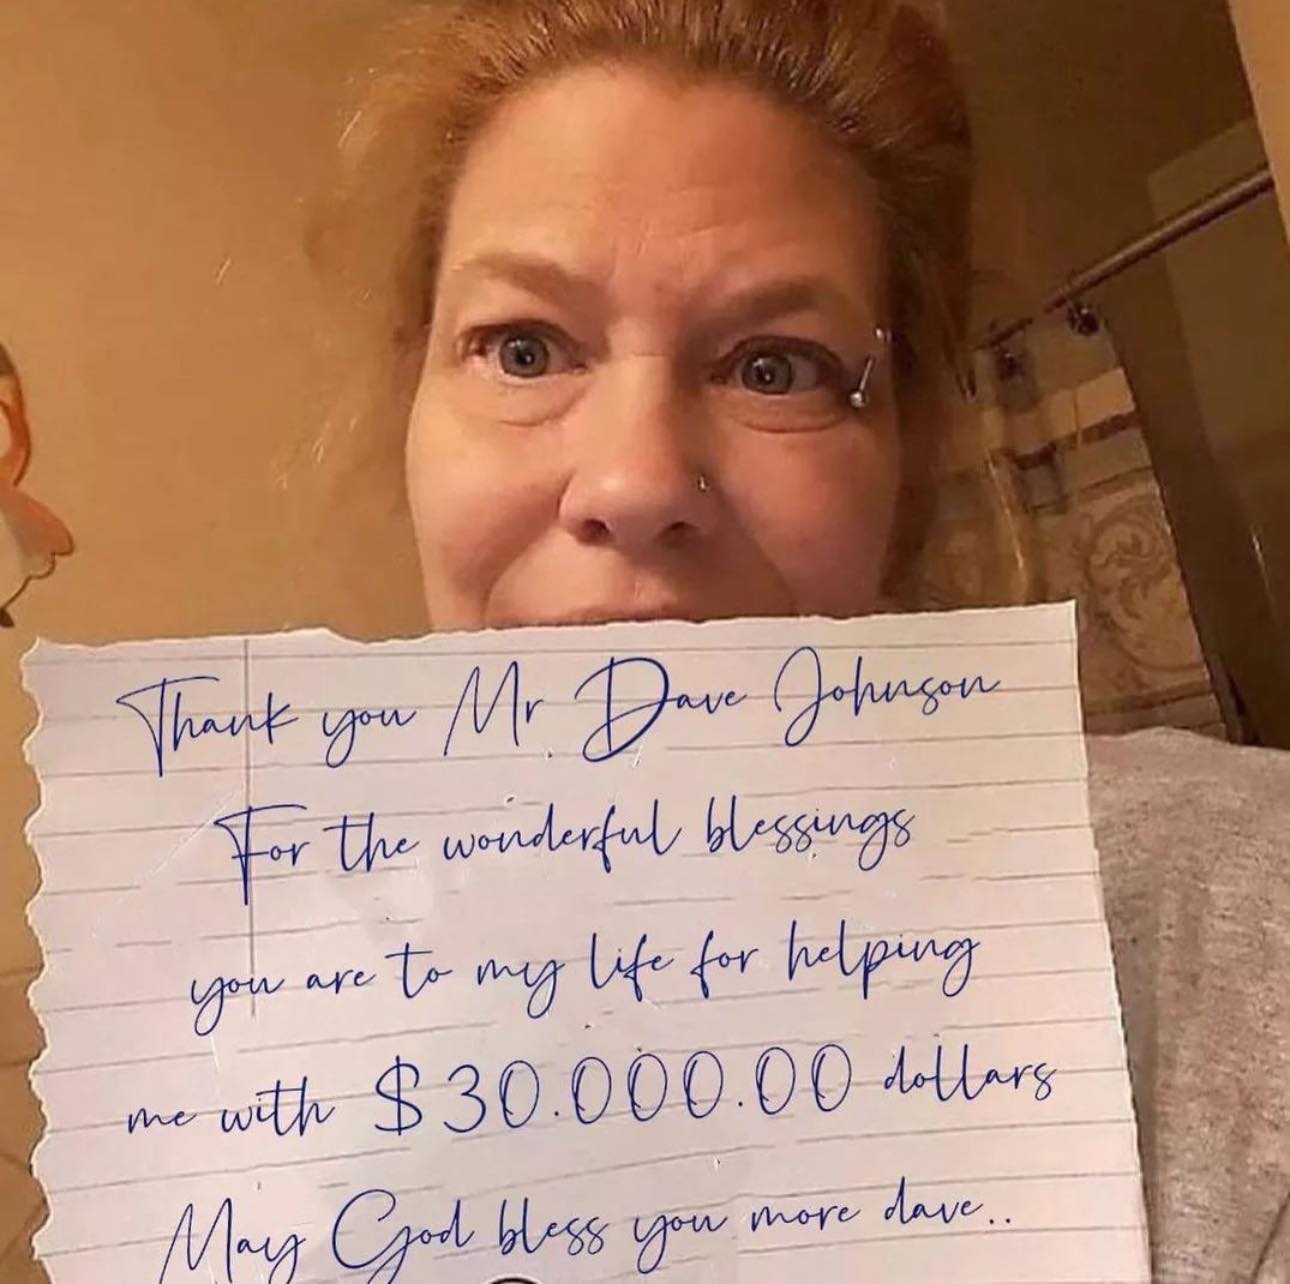 Thank you Mr Dave Johnson
For the wonderful blessings
you are to my life for helping
me with $30.000.00 dollars
May God bless you more dave..